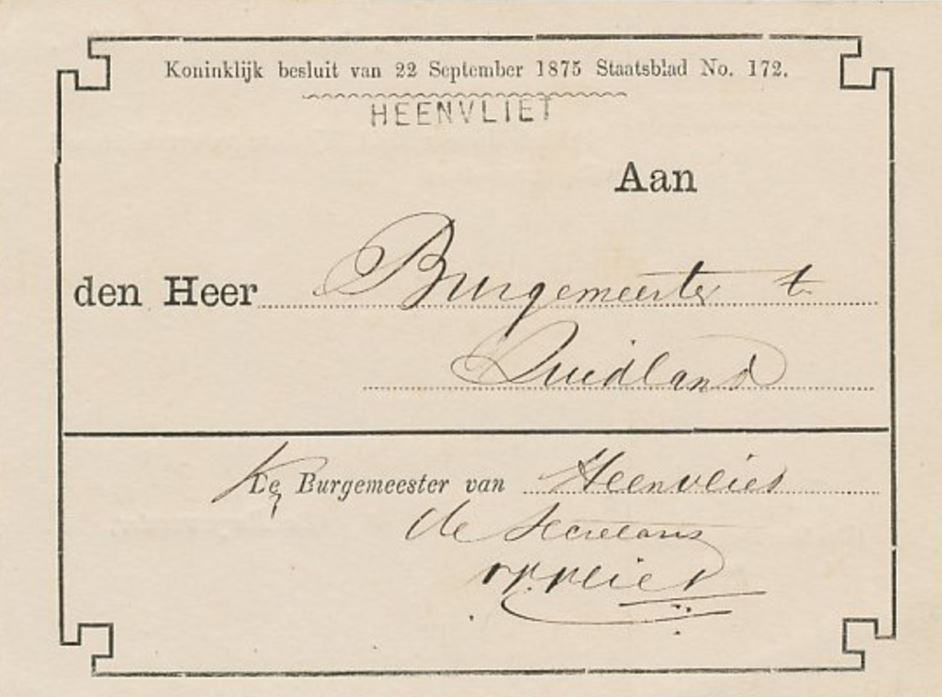 Koninklijk besluit van 22 September 1875 Staatsblad No. 172.
HEENVLIET
Aan
den Heer Burgemeester te
Zuidland
De Burgemeester van Heenvliet
de Secretaris